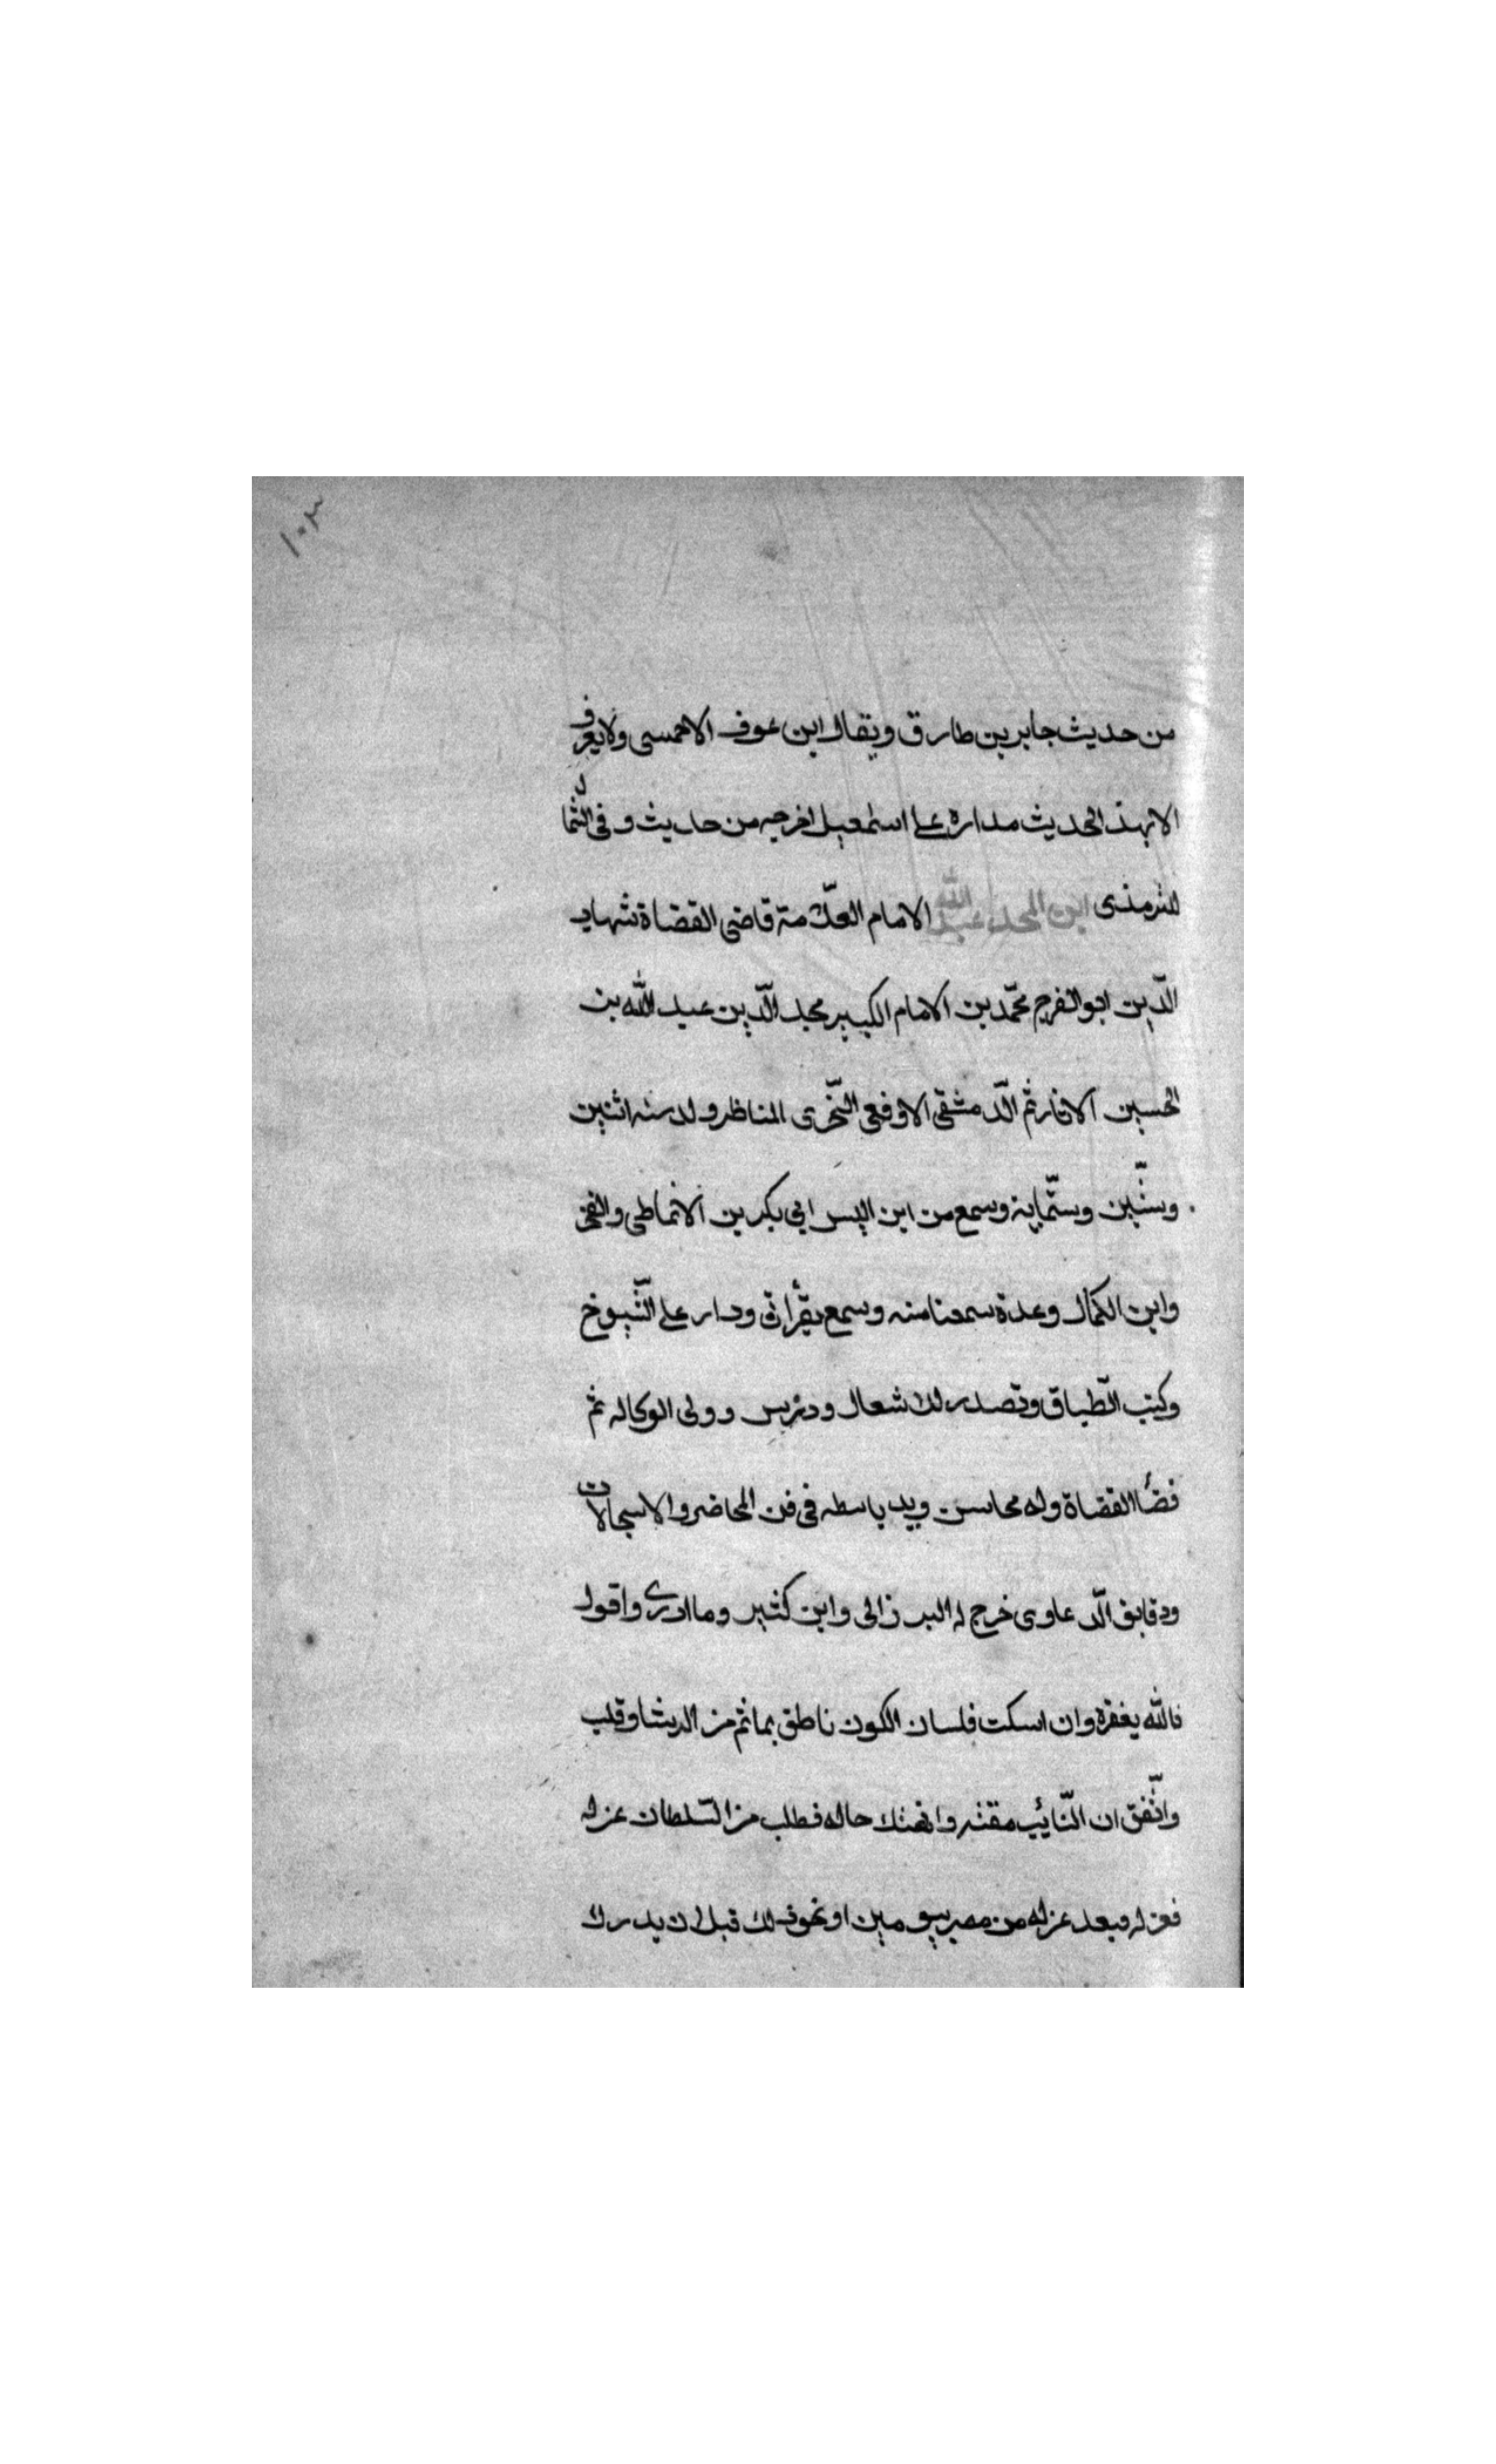 ١٠٣
من حديث جابر بن طارق ويقال ابن عوف الاحمسى ولا يعرف
الا بهذ الحديث مداره على اسمعيل اخرجه من حديث و فى الشما
للترمذى ابن المجد عبد الله الامام العلّامة قاضى القضاة شهاب
الدّين ابو الفرج محمّد بن الامام الكبير مجد الدّين عبد الله بن
الحسين الدّمشقى المناظر ولد سنه اثنين
وستّين وستّماية وسمع من ابن ابي بكر بن الانماطى والفخر
وابن الكمال وعدة سمعنا منه وسمع بقرأتى ودار على الشّيوخ
وكتب الطّباق وتصدر للاشعال ودرس وولى الوكاله ثم
قضأ القضاة وله محاسن ويد باسطه فى فن المحاضر والاسجالات
ودقايق الدّعاوى خرج له البرزالى وابن كثير وما ادرى واقول
فالله يغفره وان اسكت فلسان الكون ناطق بما ثم من وقلب
واتّفق ان النّائب مقته حاله فطلب من السّلطان عزله
فعزله فبعد عزله من مصر بيومين او نحو ذلك قبل ان يدرك